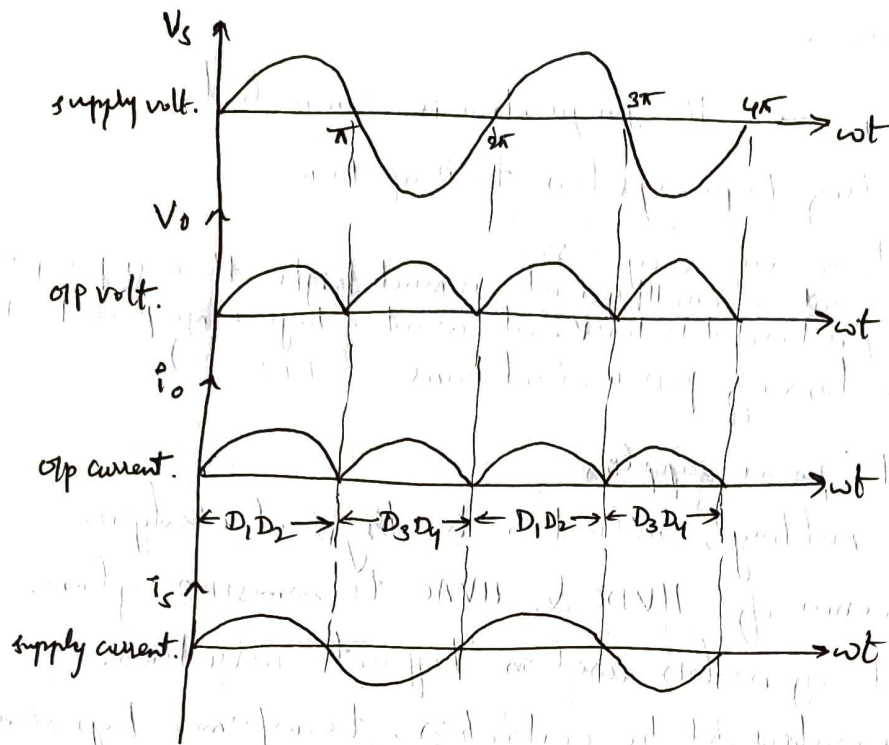 Vs
supply volt.
π 2π 3π 4π ωt
Vo
o/p volt.
ωt
io
o/p current.
ωt
D1D2 D3D4 D1D2 D3D4
is
supply current.
ωt